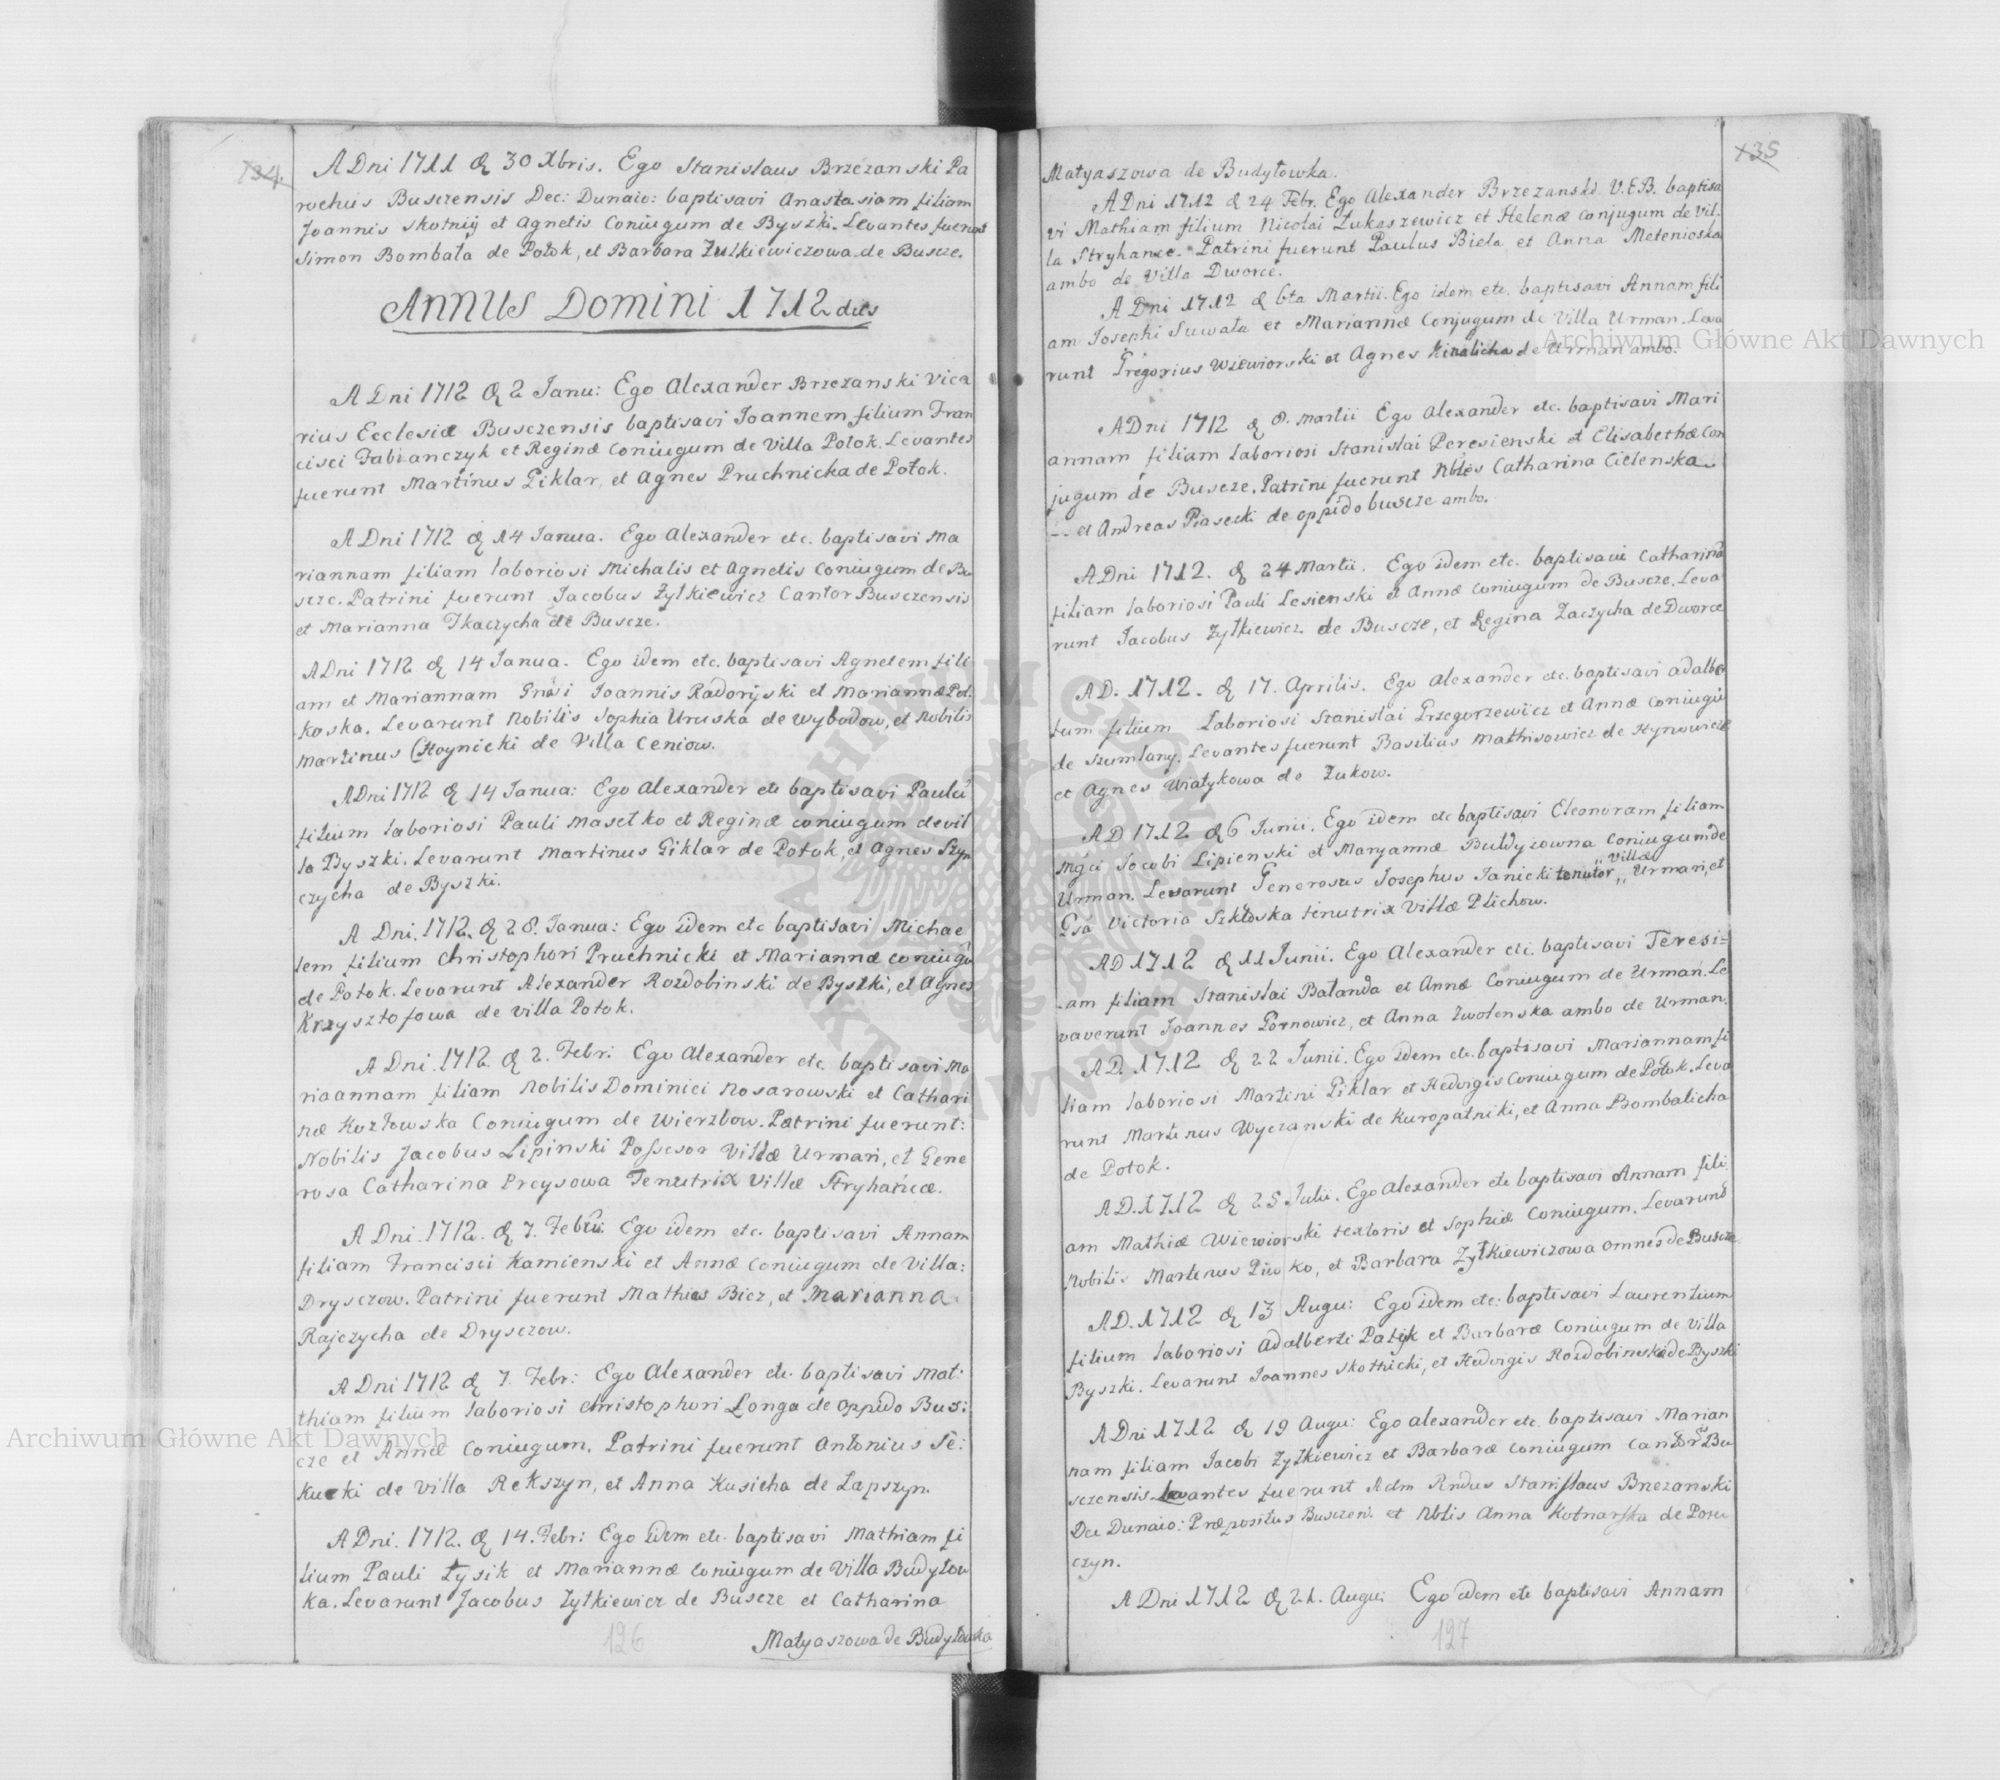 134.
A Dni 1711 d 30 Xbris. Ego Stanislaus Brzezanski Pa
rochus Busczensis Dec: Dunaio: baptisavi Anastasiam filiam
Joannis Skotnij et Agnetis Coniugum de Byszki. Levantes fuerunt
Simon Bombała de Potok, et Barbara Zułkiewiczowa de Buscze.
Annus Domini 1712dus
A Dni 1712 d 2 Janu: Ego Alexander Brzezanski Vica
rius Ecclesiæ Busczensis baptisavi Joannem filium Fran
cisci Fabianczyk et Reginæ Coniugum de Villa Potok. Levantes
fuerunt Martinus Giklar, et Agnes Pruchnicka de Potok.
A Dni 1712 d 14 Janua. Ego Alexander etc. baptisavi Ma
riannam filiam laboriosi Michalis et Agnetis Coniugum de Bu
scze. Patrini fuerunt Jacobus Zyłkiewicz Cantor Busczensis
et Marianna Tkaczycha de Buscze.
A Dni 1712 d 14 Janua. Ego idem etc. baptisavi Agnetem fili
am et Mariannam Gnosi Joannis Radorijski et Mariannæ Pot.
koska. Levarunt Nobilis Sophia Uruska de Wybodow, et Nobilis
Martinus Choynicki de Villa Ceniow.
A Dni 1712 d 14 Janua: Ego Alexander etc baptisavi Paulũ
filium laboriosi Pauli Masełko et Reginæ coniugum de vil
la Byszki. Levarunt Martinus Giklar de Potok, et Agnes Szyn
czycha de Byszki.
A Dni. 1712. d 28. Janua: Ego idem etc baptisavi Michae
lem filium Christophori Pruchnicki et Mariannæ coniugũ
de Potok. Levarunt Alexander Rozdobinski de Byszki, et Agnes
Krzysztofowa de villa Potok.
A Dni. 1712. d 2. Febr: Ego Alexander etc. baptisavi Ma
riaannam filiam Nobilis Dominici Nosarowski et Cathari
næ Kozłowska Coniugum de Wierzbow. Patrini fuerunt:
Nobilis Jacobus Lipinski Possesor Villæ Urmań, et Gene
rosa Catharina Preysowa Tenutrix Villæ Stryhańcæ.
A Dni. 1712. d 7. Febrũ. Ego idem etc. baptisavi Annam
filiam Francisci Kamienski et Annæ coniugum de Villa:
Drysczow. Patrini fuerunt Mathias Bicz, et Marianna
Rajczycha de Drysczow.
A Dni 1712 d 7. Febr: Ego Alexander etc. baptisavi Mat:
thiam filium laboriosi Christophori Longa de oppido Bus:
cze et Annæ Coniugum. Patrini fuerunt Antonius Se:
kucki de villa Rekszyn, et Anna Kusicha de Lapszyn.
A Dni. 1712. d 14. Febr: Ego idem etc. baptisavi Mathiam fi
lium Pauli Łysik et Mariannæ Coniugum de Villa Budyłow
ka. Levarunt Jacobus Zyłkiewicz de Buscze et Catharina
Matyaszowa de Budyłowka
126
135
Matyaszowa de Budyłowka.
A Dni 1712 d 24 Febr. Ego Alexander Brzezanski V.E.B. baptisa
vi Mathiam filium Nicolai Łukaszewicz et Helenæ Conjugum de Vil.
la Stryhance. Patrini fuerunt Paulus Biela et Anna Metenioska
ambo de Villa Dworce.
A Dni 1712 d 6ta Martii. Ego idem etc. baptisavi Annam fili
am Josephi Suwała et Mariannæ Conjugum de Villa Urman. Leva
runt Gregorius Wiewiorski et Agnes Kinalicha de Urman ambo.
A Dni 1712 d 8. Martii Ego Alexander etc. baptisavi Mari
annam filiam laboriosi Stanislai Peresienski et Elisabethæ Con
jugum de Buscze. Patrini fuerunt Nbles Catharina Cielenska
-- et Andreas Piasecki de oppido buscze ambo.
A Dni 1712. d 24 Martii. Ego idem etc. baptisavi Catharinã
filiam laboriosi Pauli Lesienski et Annæ coniugum de Buscze. Leva
runt Jacobus Zyłkiewicz de Buscze, et Regina Zaczycha de Dworce
A D. 1712. d 17. Aprilis. Ego Alexander etc. baptisavi adalber
tum filium Laboriosi Stanislai Grzegorzewicz et Annæ Coniugũ
de Szumlany. Levantes fuerunt Basilius Mathisowicz de Hynowicze
et Agnes Wiatykowa de Żukow.
A D 1712 d 6 Junii. Ego idem etc baptisavi Eleonoram filiam
Mgci Jacobi Lipienski et Maryannæ Buldyzowna Coniugum de
Urman. Levarunt Generosus Josephus Janicki tenutor „ Villæ „ Urman, et
Gsa Victoria Szkłoska tenutrix Villæ Plichow.
A D 1712 d 11 Junii. Ego Alexander etc. baptisavi Teresi=
-am filiam Stanislai Bałanda et Annæ Coniugum de Urmań. Le
vaverunt Joannes Pornowicz, et Anna Zwolenska ambo de Urman.
A D. 1712 d 22 Junii. Ego idem etc. baptisavi Mariannam fi
liam laboriosi Martini Giklar et Hedvigis Coniugum de Potok. Leva
runt Martinus Wyczanski de Kuropatniki, et Anna Bombalicha
de Potok.
A D. 1712 d 25 Julii. Ego Alexander etc baptisavi Annam fili
am Mathiæ Wiewiorski textoris et Sophiæ Coniugum. Levarunt
Nobilis Martinus Piwko, et Barbara Zyłkiewiczowa omnes de Buscze
A D. 1712 d 13 Augu: Ego idem etc: baptisavi Laurentium
filium laboriosi Adalberti Patyk et Barbaræ Coniugum de Villa
Byszki. Levarunt Joannes Skotnicki, et Hedvigis Rozdobinska de Byszki
A Dni 1712 d 19 Augu: Ego alexander etc. baptisavi Marian
nam filiam Jacobi Zyłkiewicz et Barbaræ Coniugum Cantoris Bu
sczensis. Levantes fuerunt Adm Rndus Stanisslaus Brzezanski
Dec Dunaio: Præpositus Busczen. et Nblis Anna Kotnarska de Poru
czyn.
A Dni 1712 d 21. Augu: Ego idem etc baptisavi Annam
127
Archiwum Główne Akt Dawnych
Archiwum Główne Akt Dawnych
ARCHIWUM GŁÓWNE AKT DAWNYCH